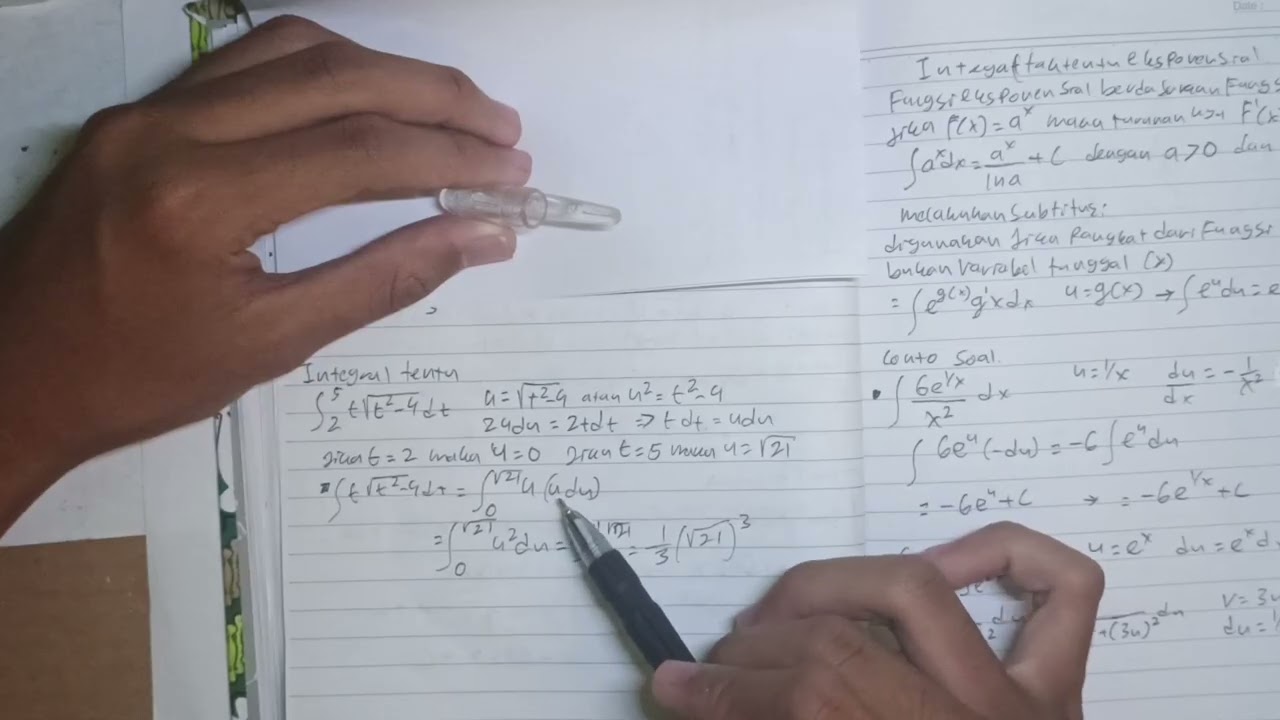 Integral tentu
∫₂⁵ t√(t²-4) dt u = √(t²-4) atau u² = t²-4
2udu = 2tdt ⇒ t dt = udu
jika t = 2 maka u = 0 jika t = 5 maka u = √21
∫ t√(t²-4) dt = ∫₀^√21 u (u du)
= ∫₀^√21 u² du = √21 = 1/3 (√21)³
Date :
Integral tak tentu eksponensial
Fungsi eksponensial berdasarkan Fungs
jika F(x) = aˣ maka turunan nya F'(x
∫ aˣ dx = aˣ/ln a + C dengan a > 0 dan
melakukan subtitus:
digunakan jika Pangkat dari Fungsi
bukan variabel tunggal (x)
= ∫ e^g(x) g'x dx u = g(x) → ∫ eᵘ du = e
Conto soal.
• ∫ 6e^(1/x)/x² dx u = 1/x du/dx = -1/x²
∫ 6eᵘ (-du) = -6 ∫ eᵘ du
= -6eᵘ + C → = -6e^(1/x) + C
u = eˣ du = eˣ d
+(3u)² du v = 3u
du =